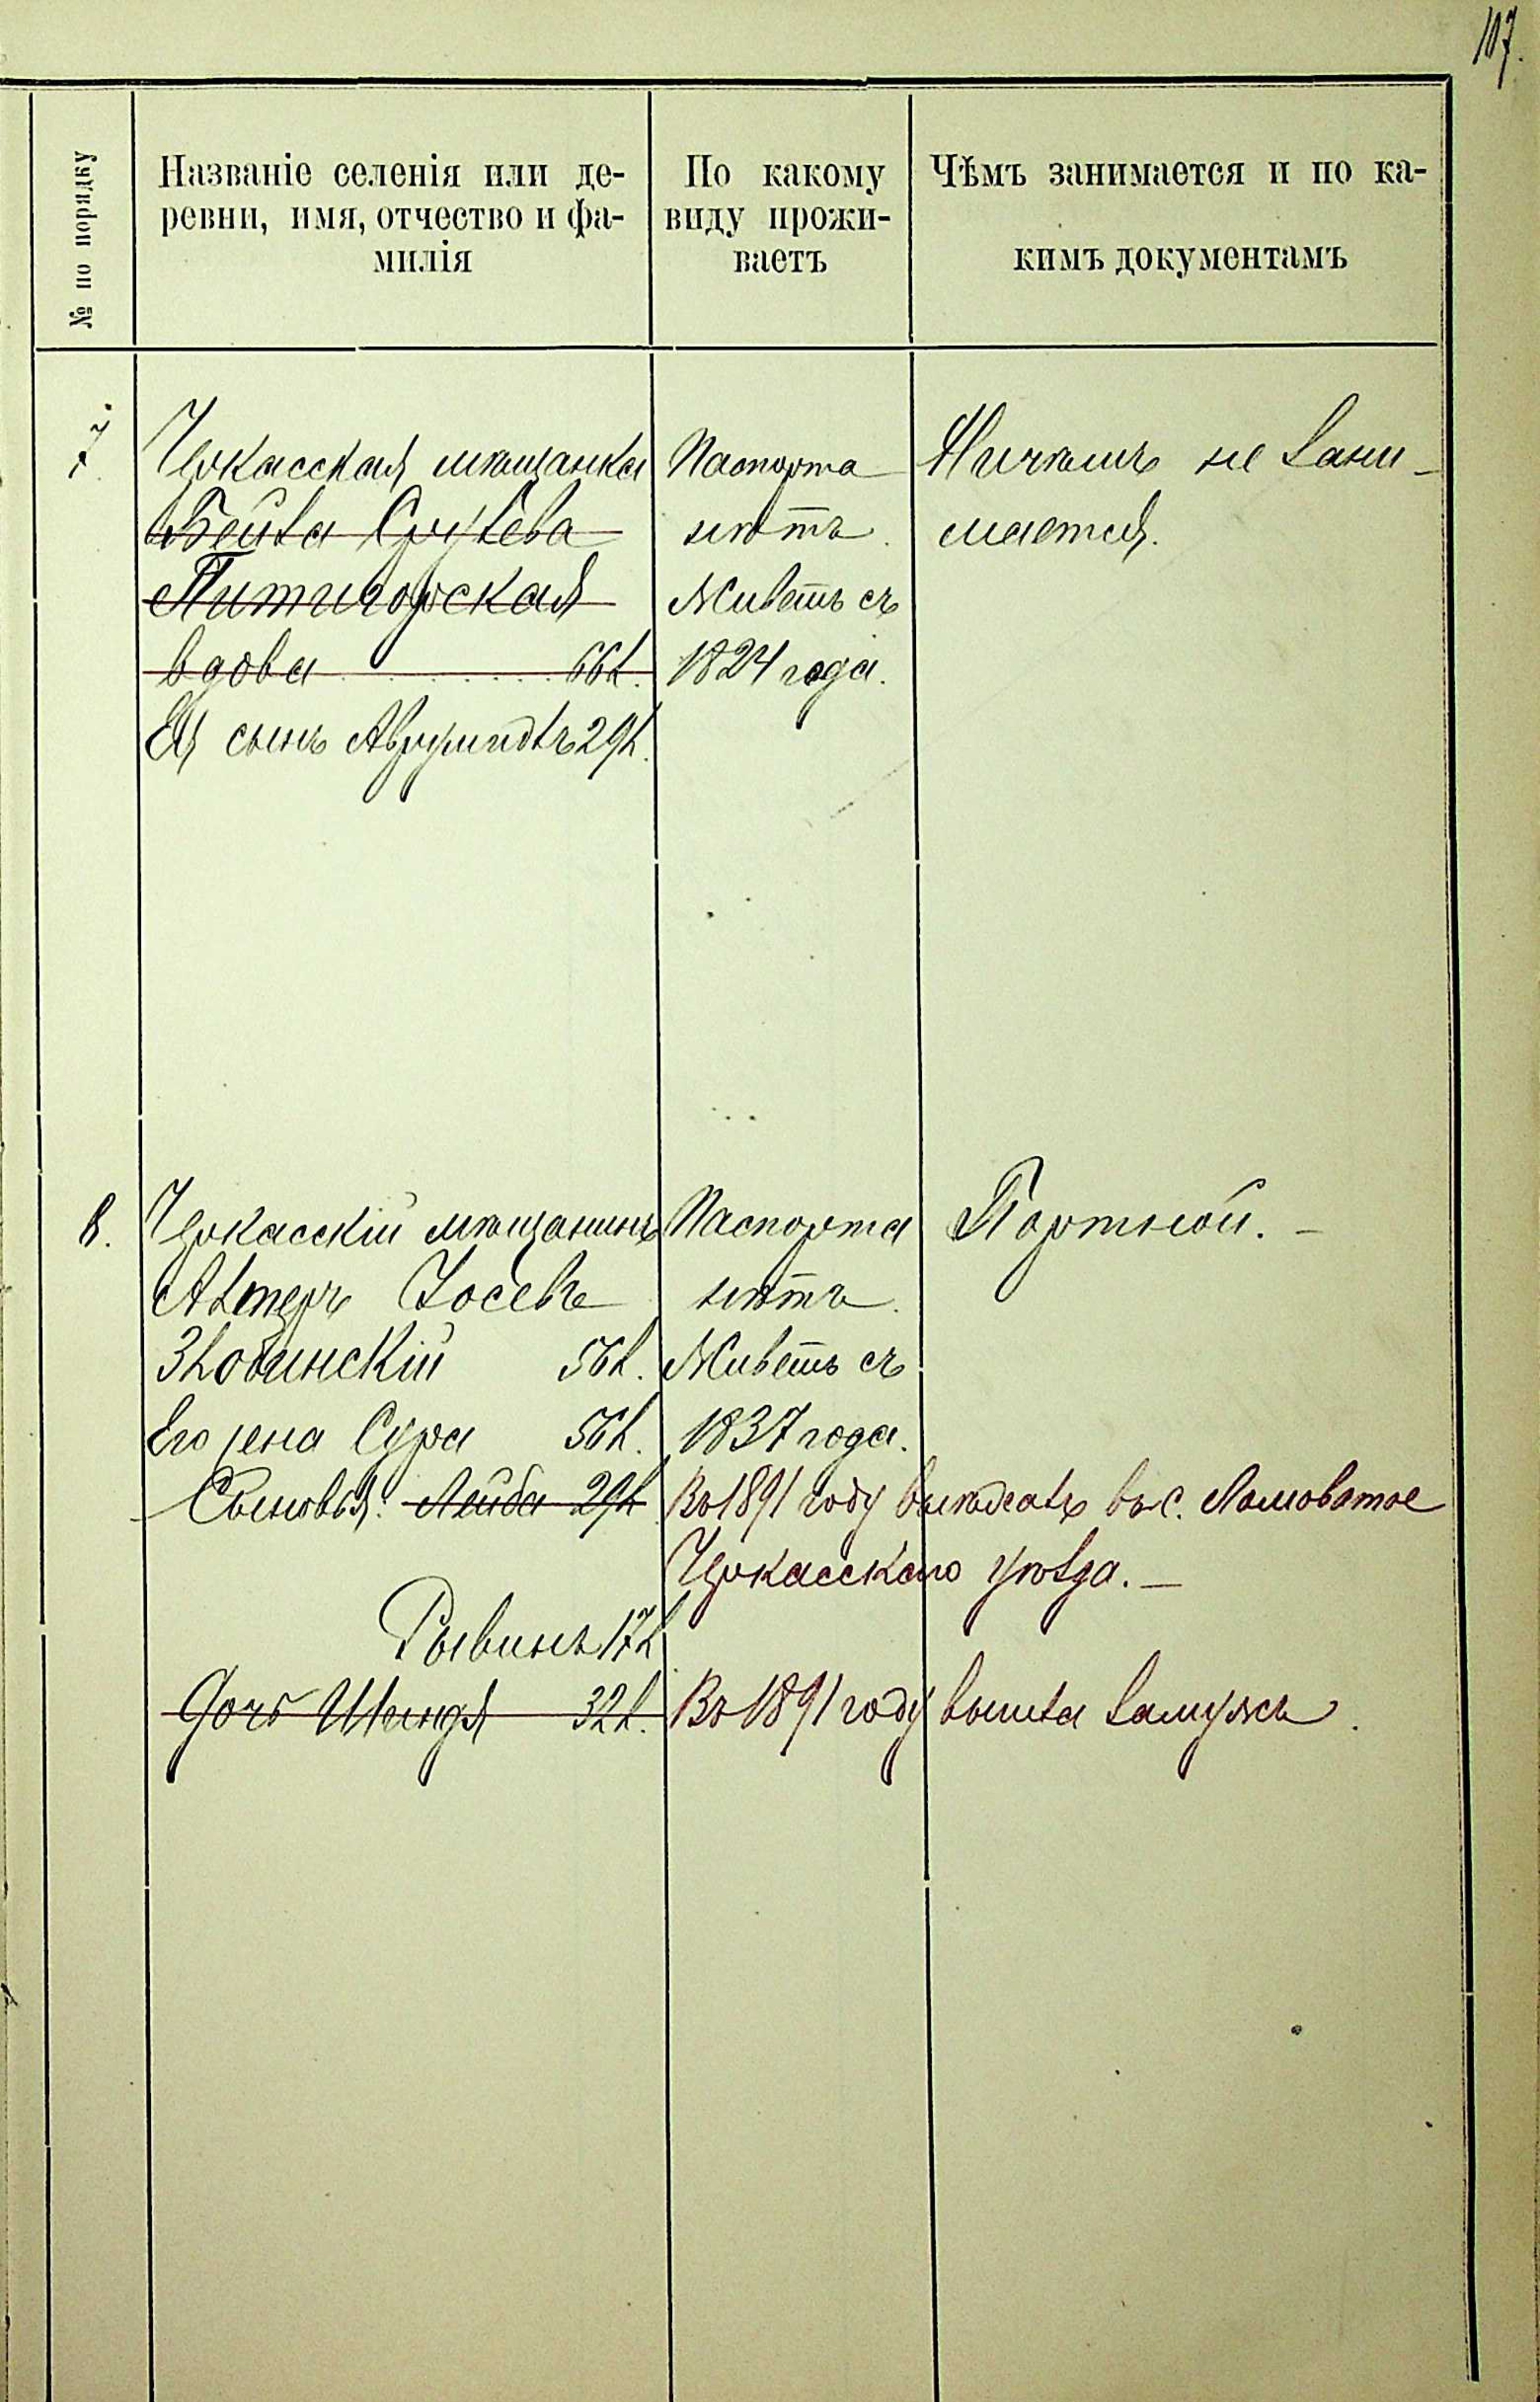 107.
№ по порядку
Названіе селенія или де-
ревни, имя, отчество и фа-
милія
По какому
виду прожи-
ваетъ
Чѣмъ занимается и по ка-
кимъ документамъ
7.
Черкасская мѣщанка
Бейла Срулева
Пятигорская
вдова 66 л.
Ея сынъ Аврумъ 29 л.
Паспорта
нѣтъ.
Живетъ съ
1824 года.
Ничѣмъ не зани-
мается.
8.
Черкасскій мѣщанинъ
Алтеръ Іосевъ
Злобинскій 56 л.
Его жена Сура 56 л.
Сыновья: Лейба 29 л.
Рывинъ 17 л.
Дочь Шейндя 32 л.
Паспорта
нѣтъ.
Живетъ съ
1837 года.
Портной. —
Въ 1891 году выѣхалъ въ с. Ломоватое
Черкасскаго уѣзда. —
Въ 1891 году вышла замужъ.